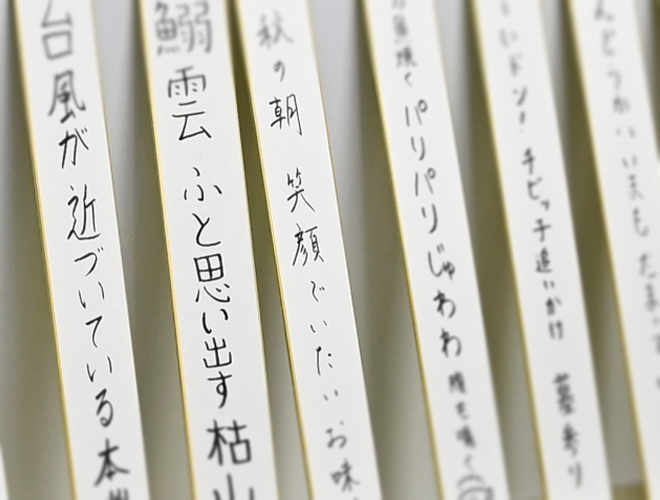 んどうかい いまも
いドン! チビッ子追いかけ 墓参り
焼く パリパリじゅわわ 腹も鳴く
秋の朝 笑顔でいたい お味
鰯雲 ふと思い出す 枯山
台風が 近づいている 本